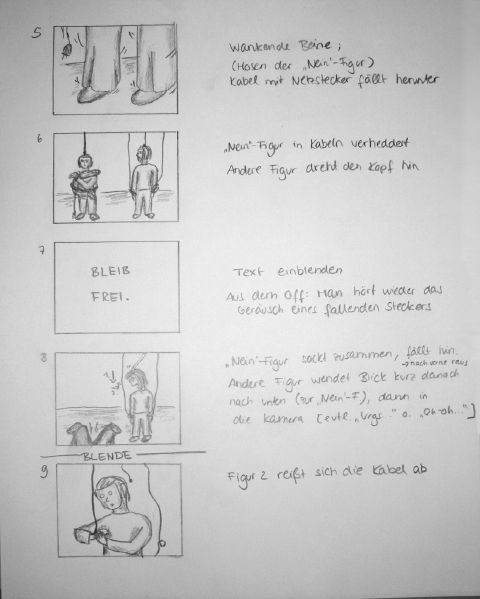 5
Wankende Beine;
(Hosen der „Nein"-Figur)
Kabel mit Netzstecker fällt herunter
6
„Nein"-Figur in Kabeln verheddert
Andere Figur dreht den Kopf hin
7
BLEIB
FREI.
Text einblenden
Aus dem Off: Man hört wieder das
Geräusch eines fallenden Steckers
8
„Nein"-Figur sackt zusammen, fällt hin.
→ nach vorne raus
Andere Figur wendet Blick kurz danach
nach unten (zur „Nein"-F), dann in
die Kamera [evtl. „Urgs..." o. „Oh-oh..."]
BLENDE
9
Figur 2 reißt sich die Kabel ab